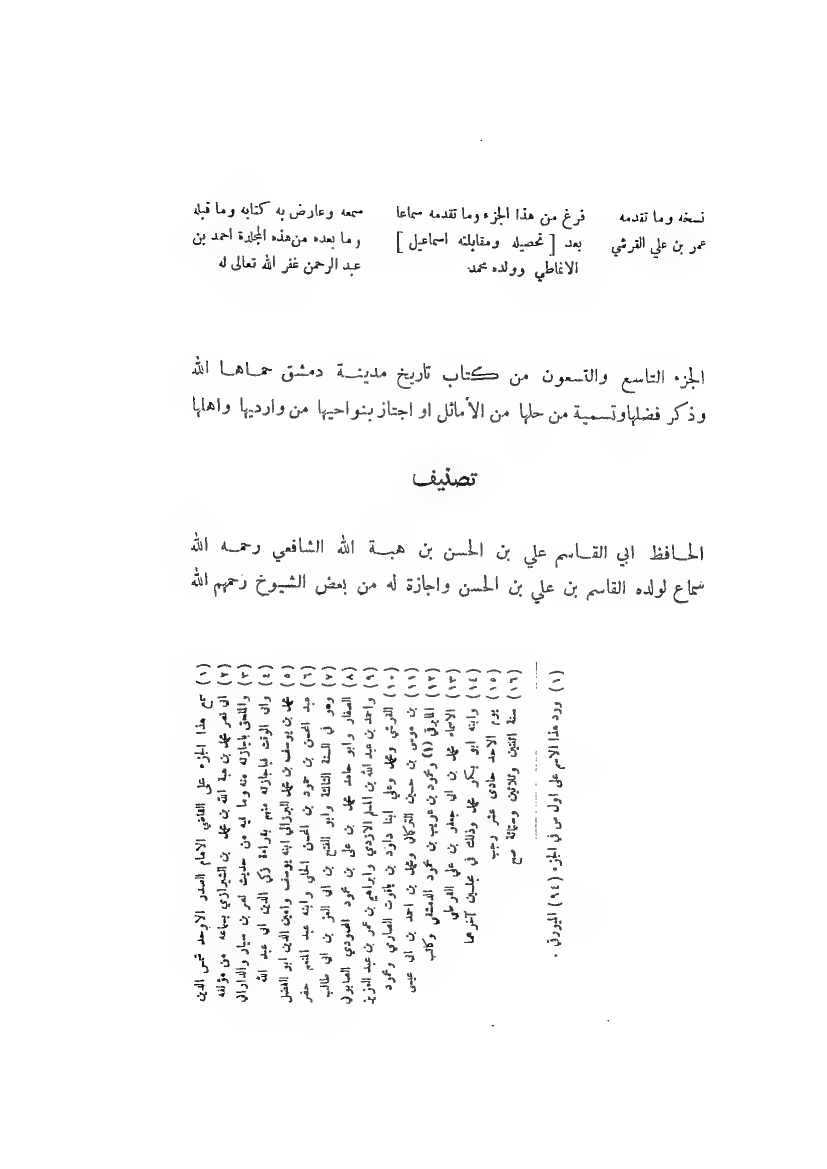 نسخه وما تقدمه
عمر بن علي القرشي
فرغ من هذا الجزء وما تقدمه سماعا
بعد [ تحصيله ومقابلته اسماعيل ]
الانماطي وولده محمد
سمعه وعارض به كتابه وما قبله
وما بعده من هذه المجلدة احمد بن
عبد الرحمن غفر الله تعالى له
الجزء التاسع والتسعون من كتاب تاريخ مدينة دمشق حماها الله
وذكر فضلها وتسمية من حلها من الأماثل او اجتاز بنواحيها من وارديها واهلها
تصنيف
الحافظ ابي القاسم علي بن الحسن بن هبة الله الشافعي رحمه الله
سماع لولده القاسم بن علي بن الحسن واجازة له من بعض الشيوخ رحمهم الله
(١) سمع هذا الجزء على القاضي الامام الصدر الاوحد شمس الدين
(٢) ابي نصر محمد بن هبة الله بن محمد بن الشيرازي بسماعه من مؤلفه
(٣) والملحق باجازته منه وما فيه من حديث نصر بن سيار والداراني
(٤) وابي الوقت فباجازته منهم بقراءة زكي الدين ابي عبد الله
(٥) محمد بن يوسف بن محمد البرزالي ابنه يوسف وامين الدين ابو الفضل
(٦) عبد المحسن بن حمود بن المحسن الحلبي وابنه عبد المنعم حضر
(٧) وهو في السنة الثالثة وابو الفتح بن ابي العز بن ابي طالب
(٨) الصفار وابو حامد محمد بن علي بن محمود المحمودي الصابوني
(٩) واحمد بن عبد الله بن المسلم الازدي وابراهيم بن عمر بن عبد العزيز
(١٠) القرشي ومحمد وعلي ابنا داود بن ياقوت الصارمي ومحمود
(١١) بن موسى بن حسين التركماني ومحمد بن احمد بن ابي عيسى
(١٢) المايرقي (١) ومحمود بن عريب بن محمود الدمشقي وكاتب
(١٣) الاسماء محمد بن ابي جعفر بن علي القرطبي
(١٤) وابنه ابو بكر محمد وذلك في مجلسين آخرهما
(١٥) يوم الاحد حادي عشر رجب
(١٦) سنة اثنتين وثلاثين وستمائة صح
(١) ورد هذا الاسم على اول ص في الجزء (٩٤) الميورقي .